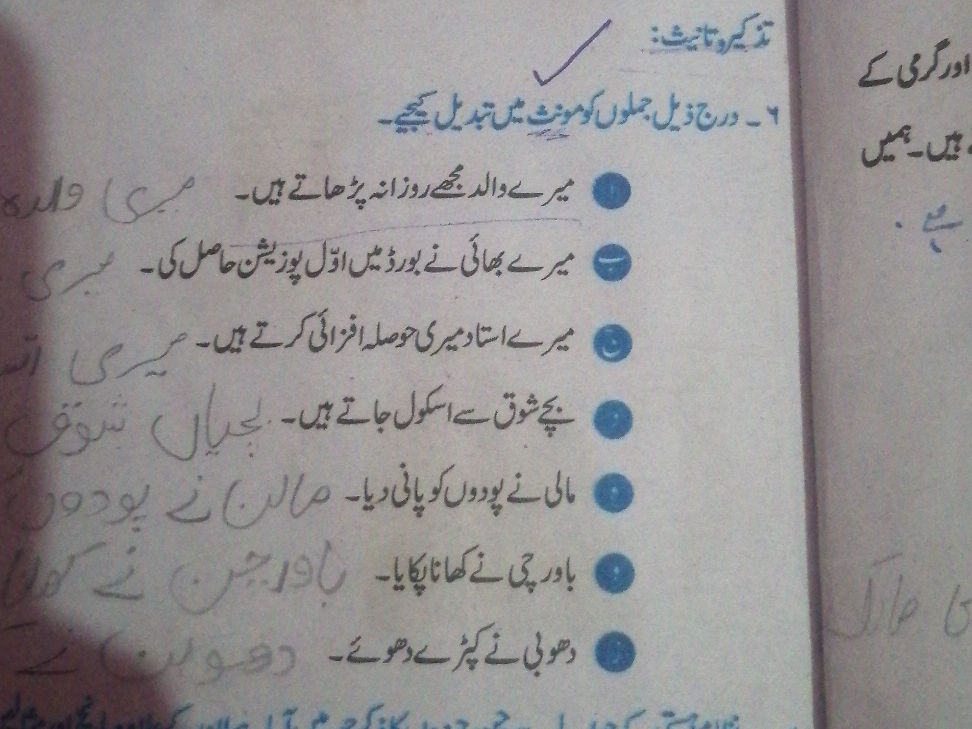 تذکیر و تانیث:
۶۔ درج ذیل جملوں کو مونث میں تبدیل کیجیے۔
میرے والد مجھے روزانہ پڑھاتے ہیں۔ میری والدہ
ب میرے بھائی نے بورڈ میں اوّل پوزیشن حاصل کی۔ میری
ج میرے استاد میری حوصلہ افزائی کرتے ہیں۔ میری
بچے شوق سے اسکول جاتے ہیں۔ بچیاں شوق
مالی نے پودوں کو پانی دیا۔ مالن نے پودوں
باورچی نے کھانا پکایا۔ باورچن نے
دھوبی نے کپڑے دھوئے۔ دھوبن نے
اور گرمی کے
ہیں۔ ہمیں